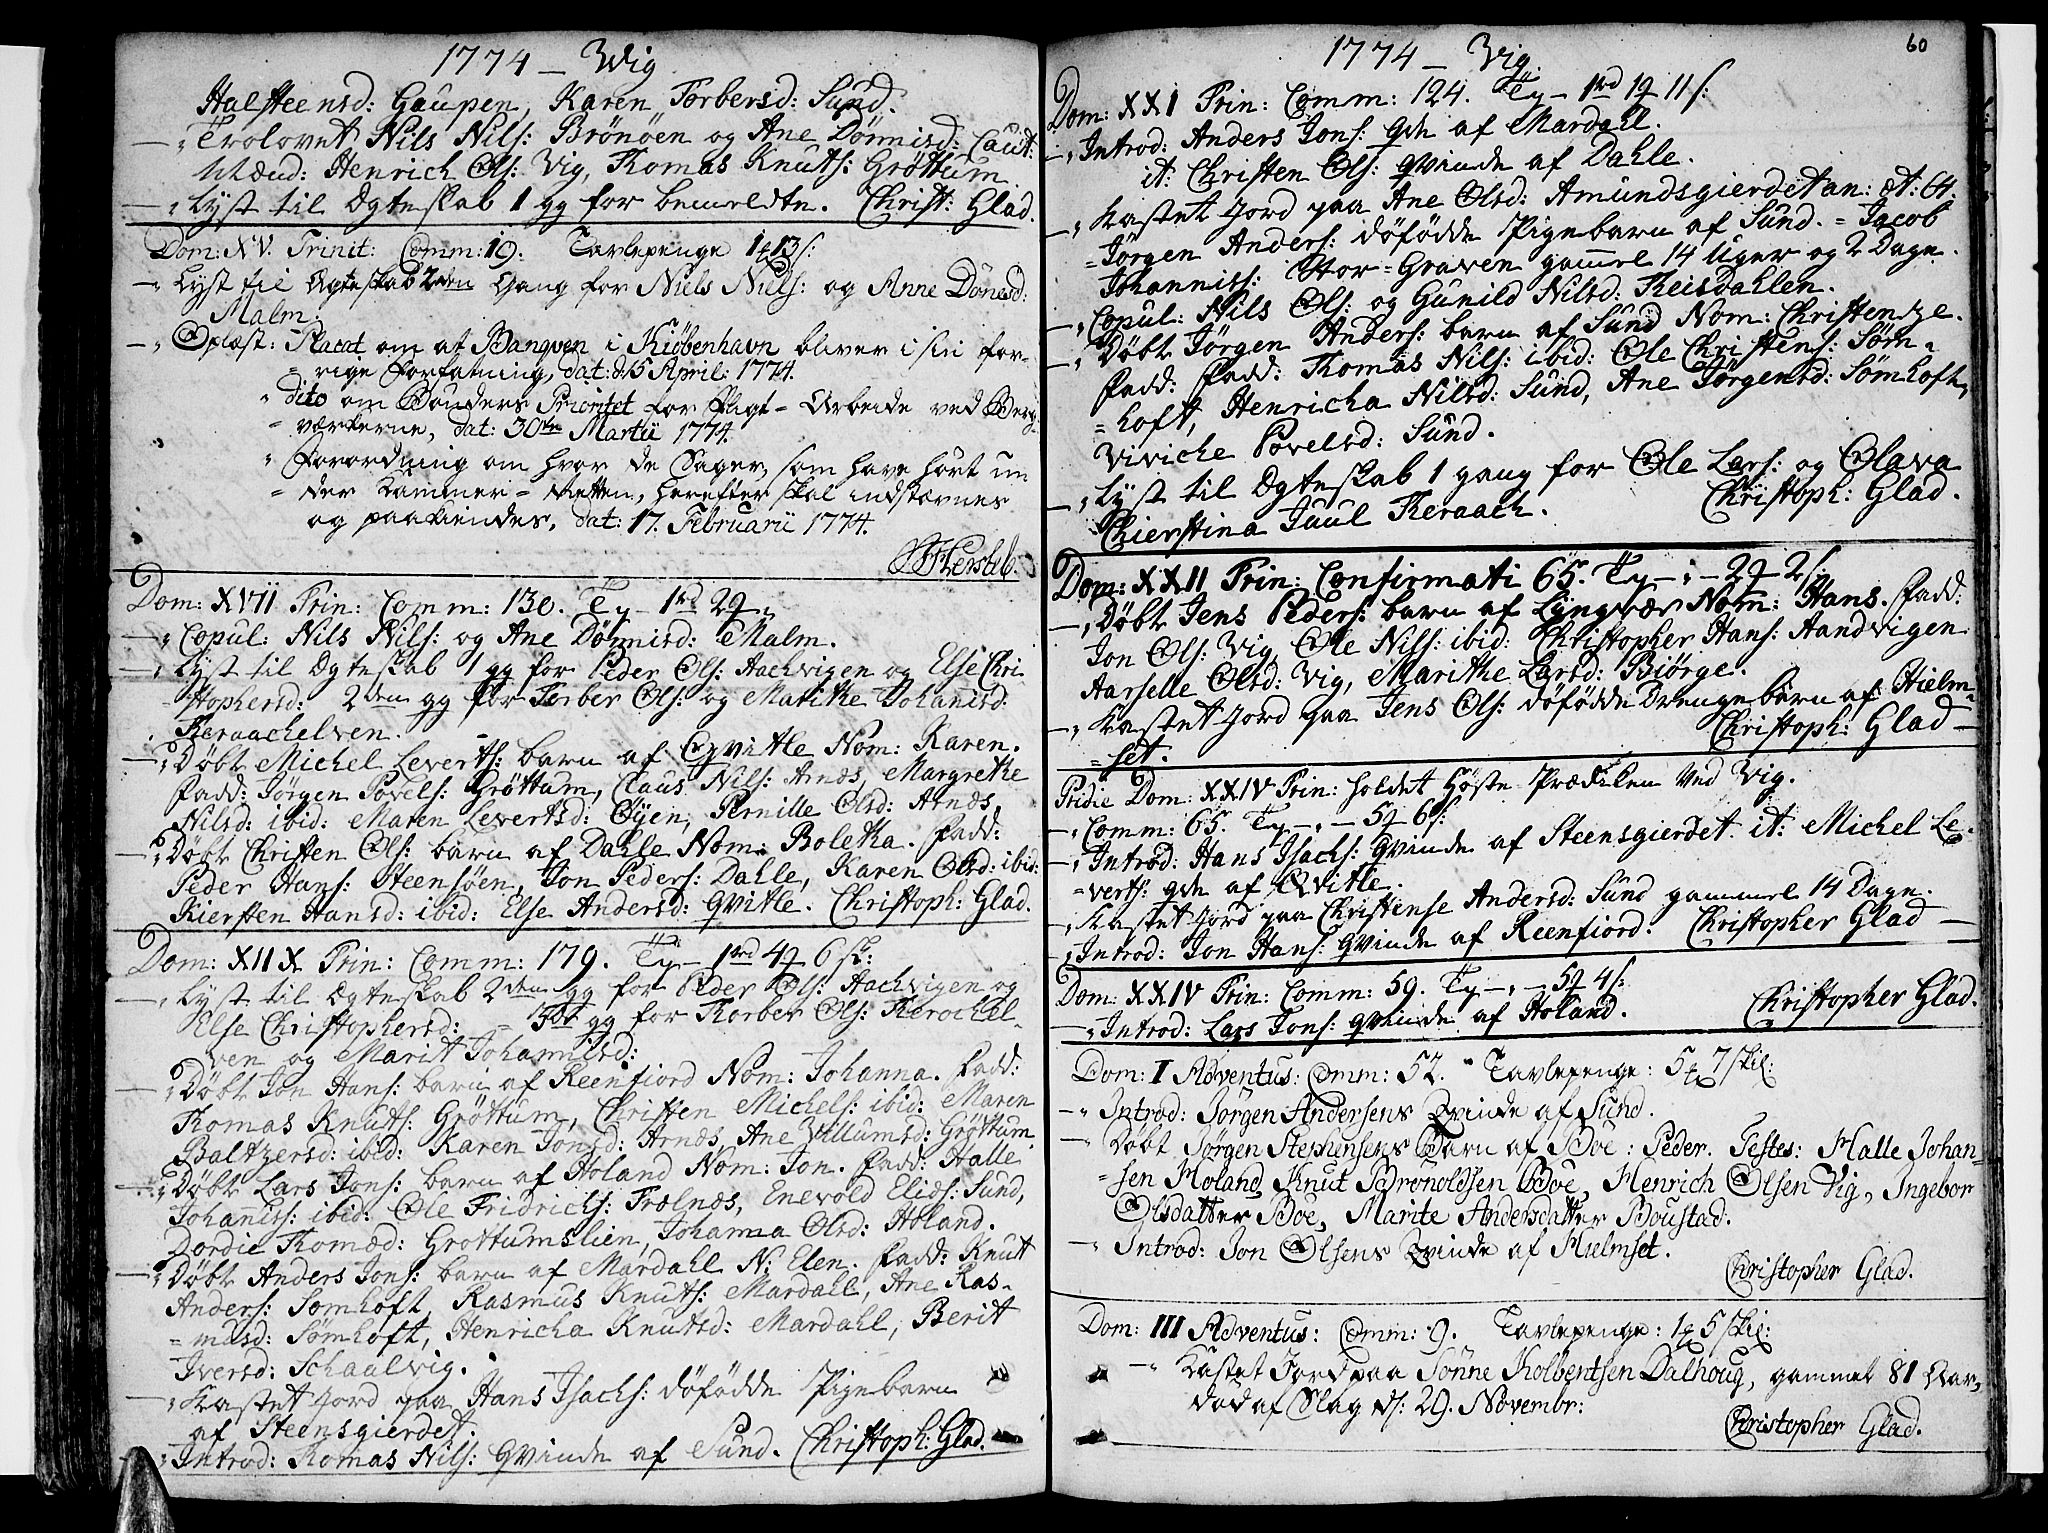 1774 – Wig
Halsteensd: Gaupen, Karen Torbersd: Sund.
–„ Trolovet Nils Nils: Brönöen og Ane Dönnisd: Caut:
Mænd: Henrich Ols: Vig, Thomas Knuts: Gröttum
–„ Lyst til Ægteskab 1 gg for bemeldte. Christ: Glad.
Dom: XV. Trinit: Comm: 19. Tavlepenge 13 s:
–„ Lyst til Ægteskab 2den Gang for Niels Niels: og Anne Dönesd:
Malm.
–„ Oplæst: Placat om at Banqven i Kiöbenhavn bliver i sin for-
= rige Forfatning, dat: d: 5 April: 1774.
„ dito om Bönders Prioritet for Pligt-Arbeide ved Berg-
= værkerne, dat: 30te Martii 1774.
„ Forordning om hvor de Sager, som have hört un
= der Kammer-Retten, herefter skal indstævnes
og paakiendes, dat: 17. Februarii 1774.
Dom: XVII Trin: Comm: 130. Tp – 1rd 2
–„ Copul: Nils Nils: og Ane Dönnisd: Malm.
–„ Lyst til Ægteskab 1 gg for Peder Ols: Aachvigen og Else Chri
stophersd: 2den gg for Torber Ols: og Marithe Johanisd:
Keraachelven.
–„ Döbt Michel Leverts: barn af Qvitle Nom: Karen.
Fadd: Jörgen Povels: Gröttum, Claus Nils: Arnds, Margrethe
Nilsd: ibid: Maren Levertsd: Öyen, Pernille Olsd: Arnds,
–„ Döbt Christen Ols: barn af Dahle Nom: Boletha. Fadd:
Peder Hans: Steensöen, Jon Peders: Dahle, Karen Olsd: ibid:
Kiersten Hansd: ibid: Else Andersd: Qvitle. Christoph: Glad.
Dom: XIIX Trin: Comm: 179. Tp – 1rd 4 6 sk:
–„ Lyst til Ægteskab 2den gg for Peder Ols: Aachvigen og
Else Christophersd: – gg for Thorber Ols: Kerochel-
ven og Marit Johannisd:
–„ Döbt Jon Hans: barn af Reenfiord Nom: Johanna. Fadd:
Thomas Knuts: Gröttum, Christen Michels: ibid: Maren
Baltzersd: ibid: Karen Jonsd: Arnds, Ane Villumsd: Gröttum.
–„ Döbt Lars Jons: barn af Holand Nom: Jon. Fadd: Halle
Johannis: ibid: Ole Fridrichs: Trælnæs, Enevold Elids: Sund,
Dordie Thomæd: Grottumslien, Johanna Olsd: Holand.
–„ Döbt Anders Jons: barn af Mardahl N: Elen. Fadd: Knutt
Anders: Sömhoft, Rasmus Knuts: Mardahl, Ane Ras-
= musd: Sömhoft, Henricha Knutsd: Mardahl, Berit
Iversd: Schaalvig.
–„ Kastet Jord paa Hans Isachs: döfödde Pigebarn
af Steensgierdet.
–„ Introd: Thomas Nils: Qvinde af Sund. Christoph: Glad.
60
1774 – Vig.
Dom: XXI Trin: Comm: 124. Tp – 1rd 1 11 s:
–„ Introd: Anders Jons: qde af Mardahl.
it: Christen Ols: qvinde af Dahle.
–„ Kastet Jord paa Ane Olsd: Amundsgierdet an: æt: 64.
= Jörgen Anders: döfödde Pigebarn af Sund. = Jacob
Johannis: Stor-Graven gammel 14 Uger og 2 Dage.
–„ Copul: Nils Ols: og Gunild Nilsd: Reisdahlen.
–„ Döbt Jörgen Anders: barn af Sund Nom: Christendze.
Fadd: Fadd: Thomas Nils: ibid: Ole Christens: Söm-
= hoft, Henricha Nilsd: Sund, Ane Jörgensd: Sömhoft,
Viviche Povelsd: Sund.
–„ Lyst til Ægteskab 1 gang for Ole Lars: og Olava
Chierstina Juul Keraach. Christoph: Glad.
Dom: XXII Trin: Confirmati 65. Tp – „ – 2 2 s:
–„ Döbt Jens Peders: barn af Lyngvær Nom: Hans. Fadd:
Jon Ols: Vig, Ole Nils: ibid: Christopher Hans: Aandvigen
Aarselle Olsd: Vig, Marithe Larsd: Biörge.
–„ Kastet Jord paa Jens Ols: döfödde Drengebarn af Hielm-
= set. Christoph: Glad –
Pridie Dom: XXIV Trin: holdet Höste-Prædiken ved Vig.
–„ Comm: 65. Tp – „ – 5 6 s:
–„ Introd: Hans Isachs: Qvinde af Steensgierdet. it: Michel Le-
= verts: qde af Qvitle.
–„ Kastet Jord paa Christense Andersd: Sund gammel 14 Dage.
–„ Introd: Jon Hans: qvinde af Reenfiord. Christopher Glad –
Dom: XXIV Trin: Comm: 59. Tp – „ – 5 4 s:
–„ Introd: Lars Jons: qvinde af Holand. Christopher Glad.
Dom: I Adventus: Comm: 52. Tavlepenge: 5 7 skil:
–„ Introd: Jörgen Andersens Qvinde af Sund.
–„ Döbt Jörgen Stephensens Barn af Boe: Peder. Testes: Halle Johan-
= sen Holand, Knut Bronoldsen Boe, Henrich Olsen Vig, Ingebor
Olsdatter Boe, Marite Andersdatter Boustad.
–„ Introd: Jon Olsens Qvinde af Hielmset.
Christopher Glad.
Dom: III Adventus: Comm: 9. Tavlepenge: 1 5 skil:
–„ Kastet Jord paa Sönne Kolbentsen Dalhoug, gammel 81 Aar,
död af Slag d: 29. Novembr:
Christopher Glad.